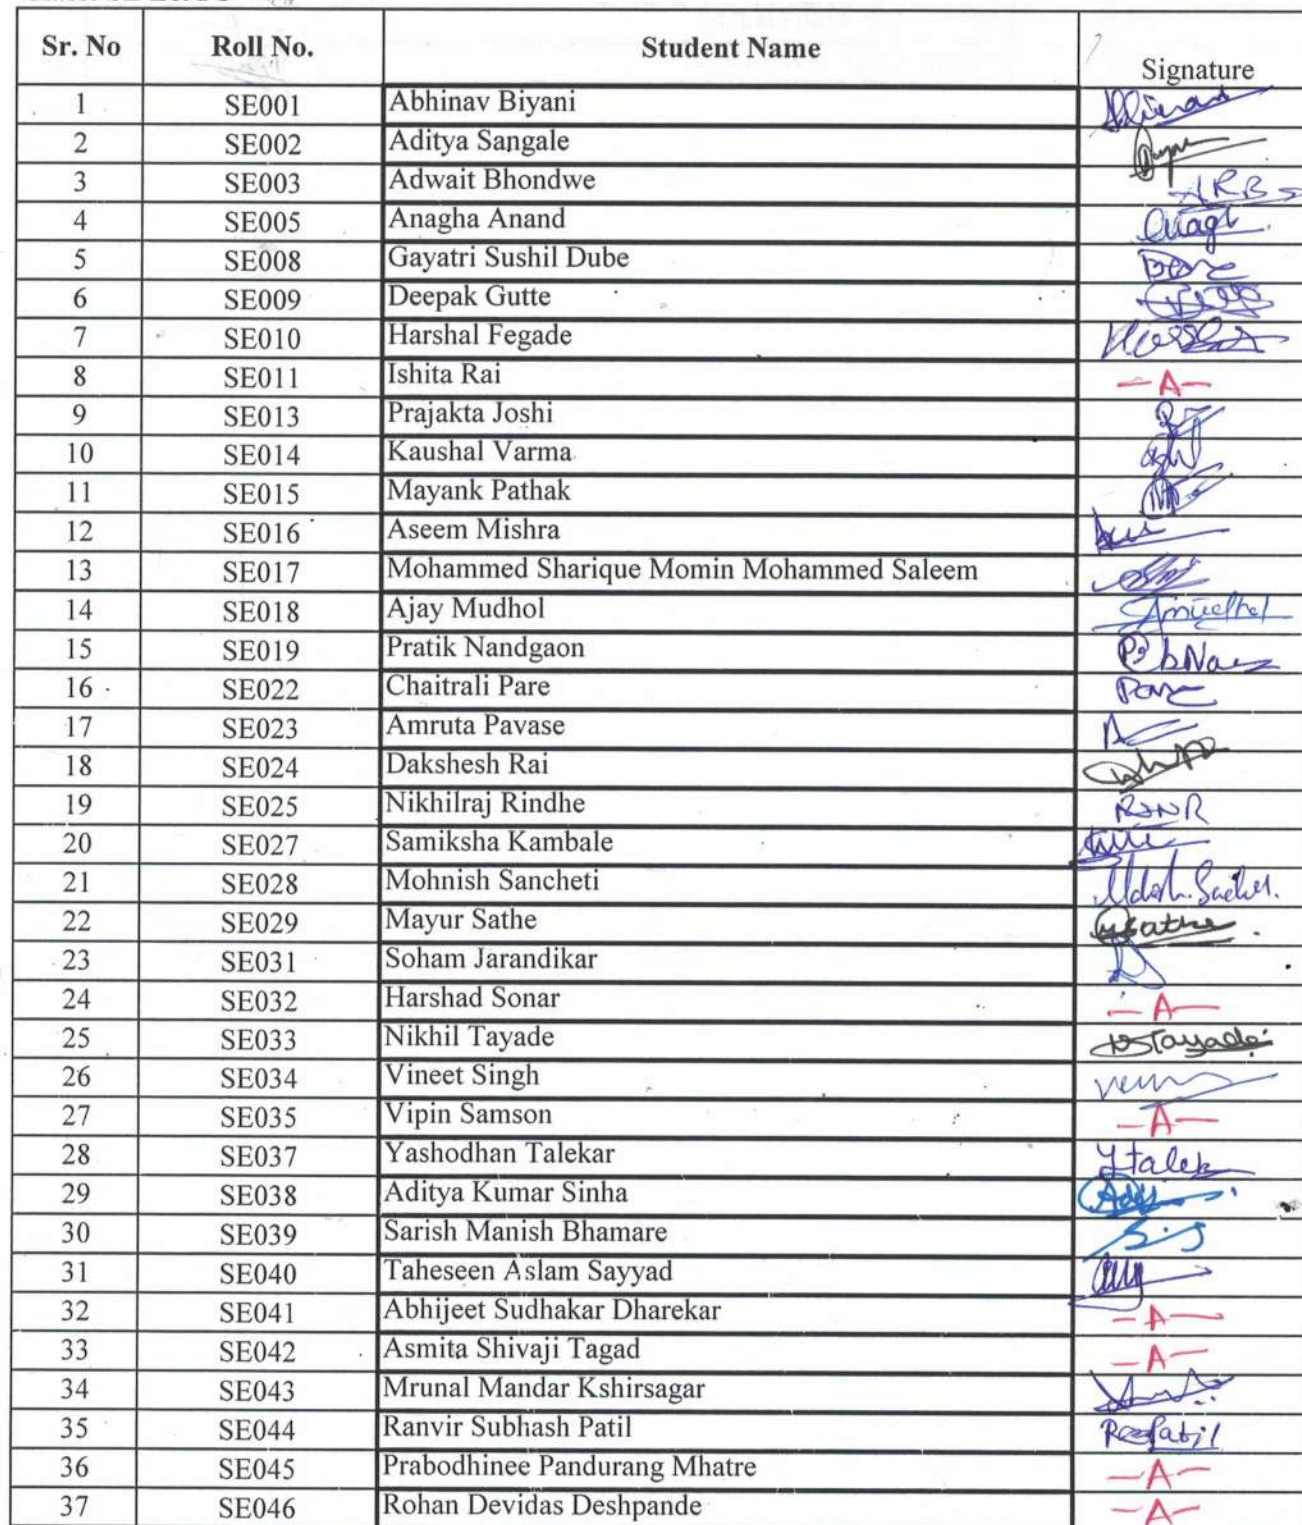 Sr. No Roll No. Student Name Signature
1 SE001 Abhinav Biyani
2 SE002 Aditya Sangale
3 SE003 Adwait Bhondwe ARB
4 SE005 Anagha Anand
5 SE008 Gayatri Sushil Dube
6 SE009 Deepak Gutte
7 SE010 Harshal Fegade
8 SE011 Ishita Rai -A-
9 SE013 Prajakta Joshi
10 SE014 Kaushal Varma
11 SE015 Mayank Pathak
12 SE016 Aseem Mishra
13 SE017 Mohammed Sharique Momin Mohammed Saleem
14 SE018 Ajay Mudhol
15 SE019 Pratik Nandgaon
16 SE022 Chaitrali Pare Pare
17 SE023 Amruta Pavase
18 SE024 Dakshesh Rai
19 SE025 Nikhilraj Rindhe
20 SE027 Samiksha Kambale
21 SE028 Mohnish Sancheti
22 SE029 Mayur Sathe
23 SE031 Soham Jarandikar
24 SE032 Harshad Sonar -A-
25 SE033 Nikhil Tayade
26 SE034 Vineet Singh
27 SE035 Vipin Samson -A-
28 SE037 Yashodhan Talekar
29 SE038 Aditya Kumar Sinha
30 SE039 Sarish Manish Bhamare
31 SE040 Taheseen Aslam Sayyad
32 SE041 Abhijeet Sudhakar Dharekar -A-
33 SE042 Asmita Shivaji Tagad -A-
34 SE043 Mrunal Mandar Kshirsagar
35 SE044 Ranvir Subhash Patil
36 SE045 Prabodhinee Pandurang Mhatre -A-
37 SE046 Rohan Devidas Deshpande -A-